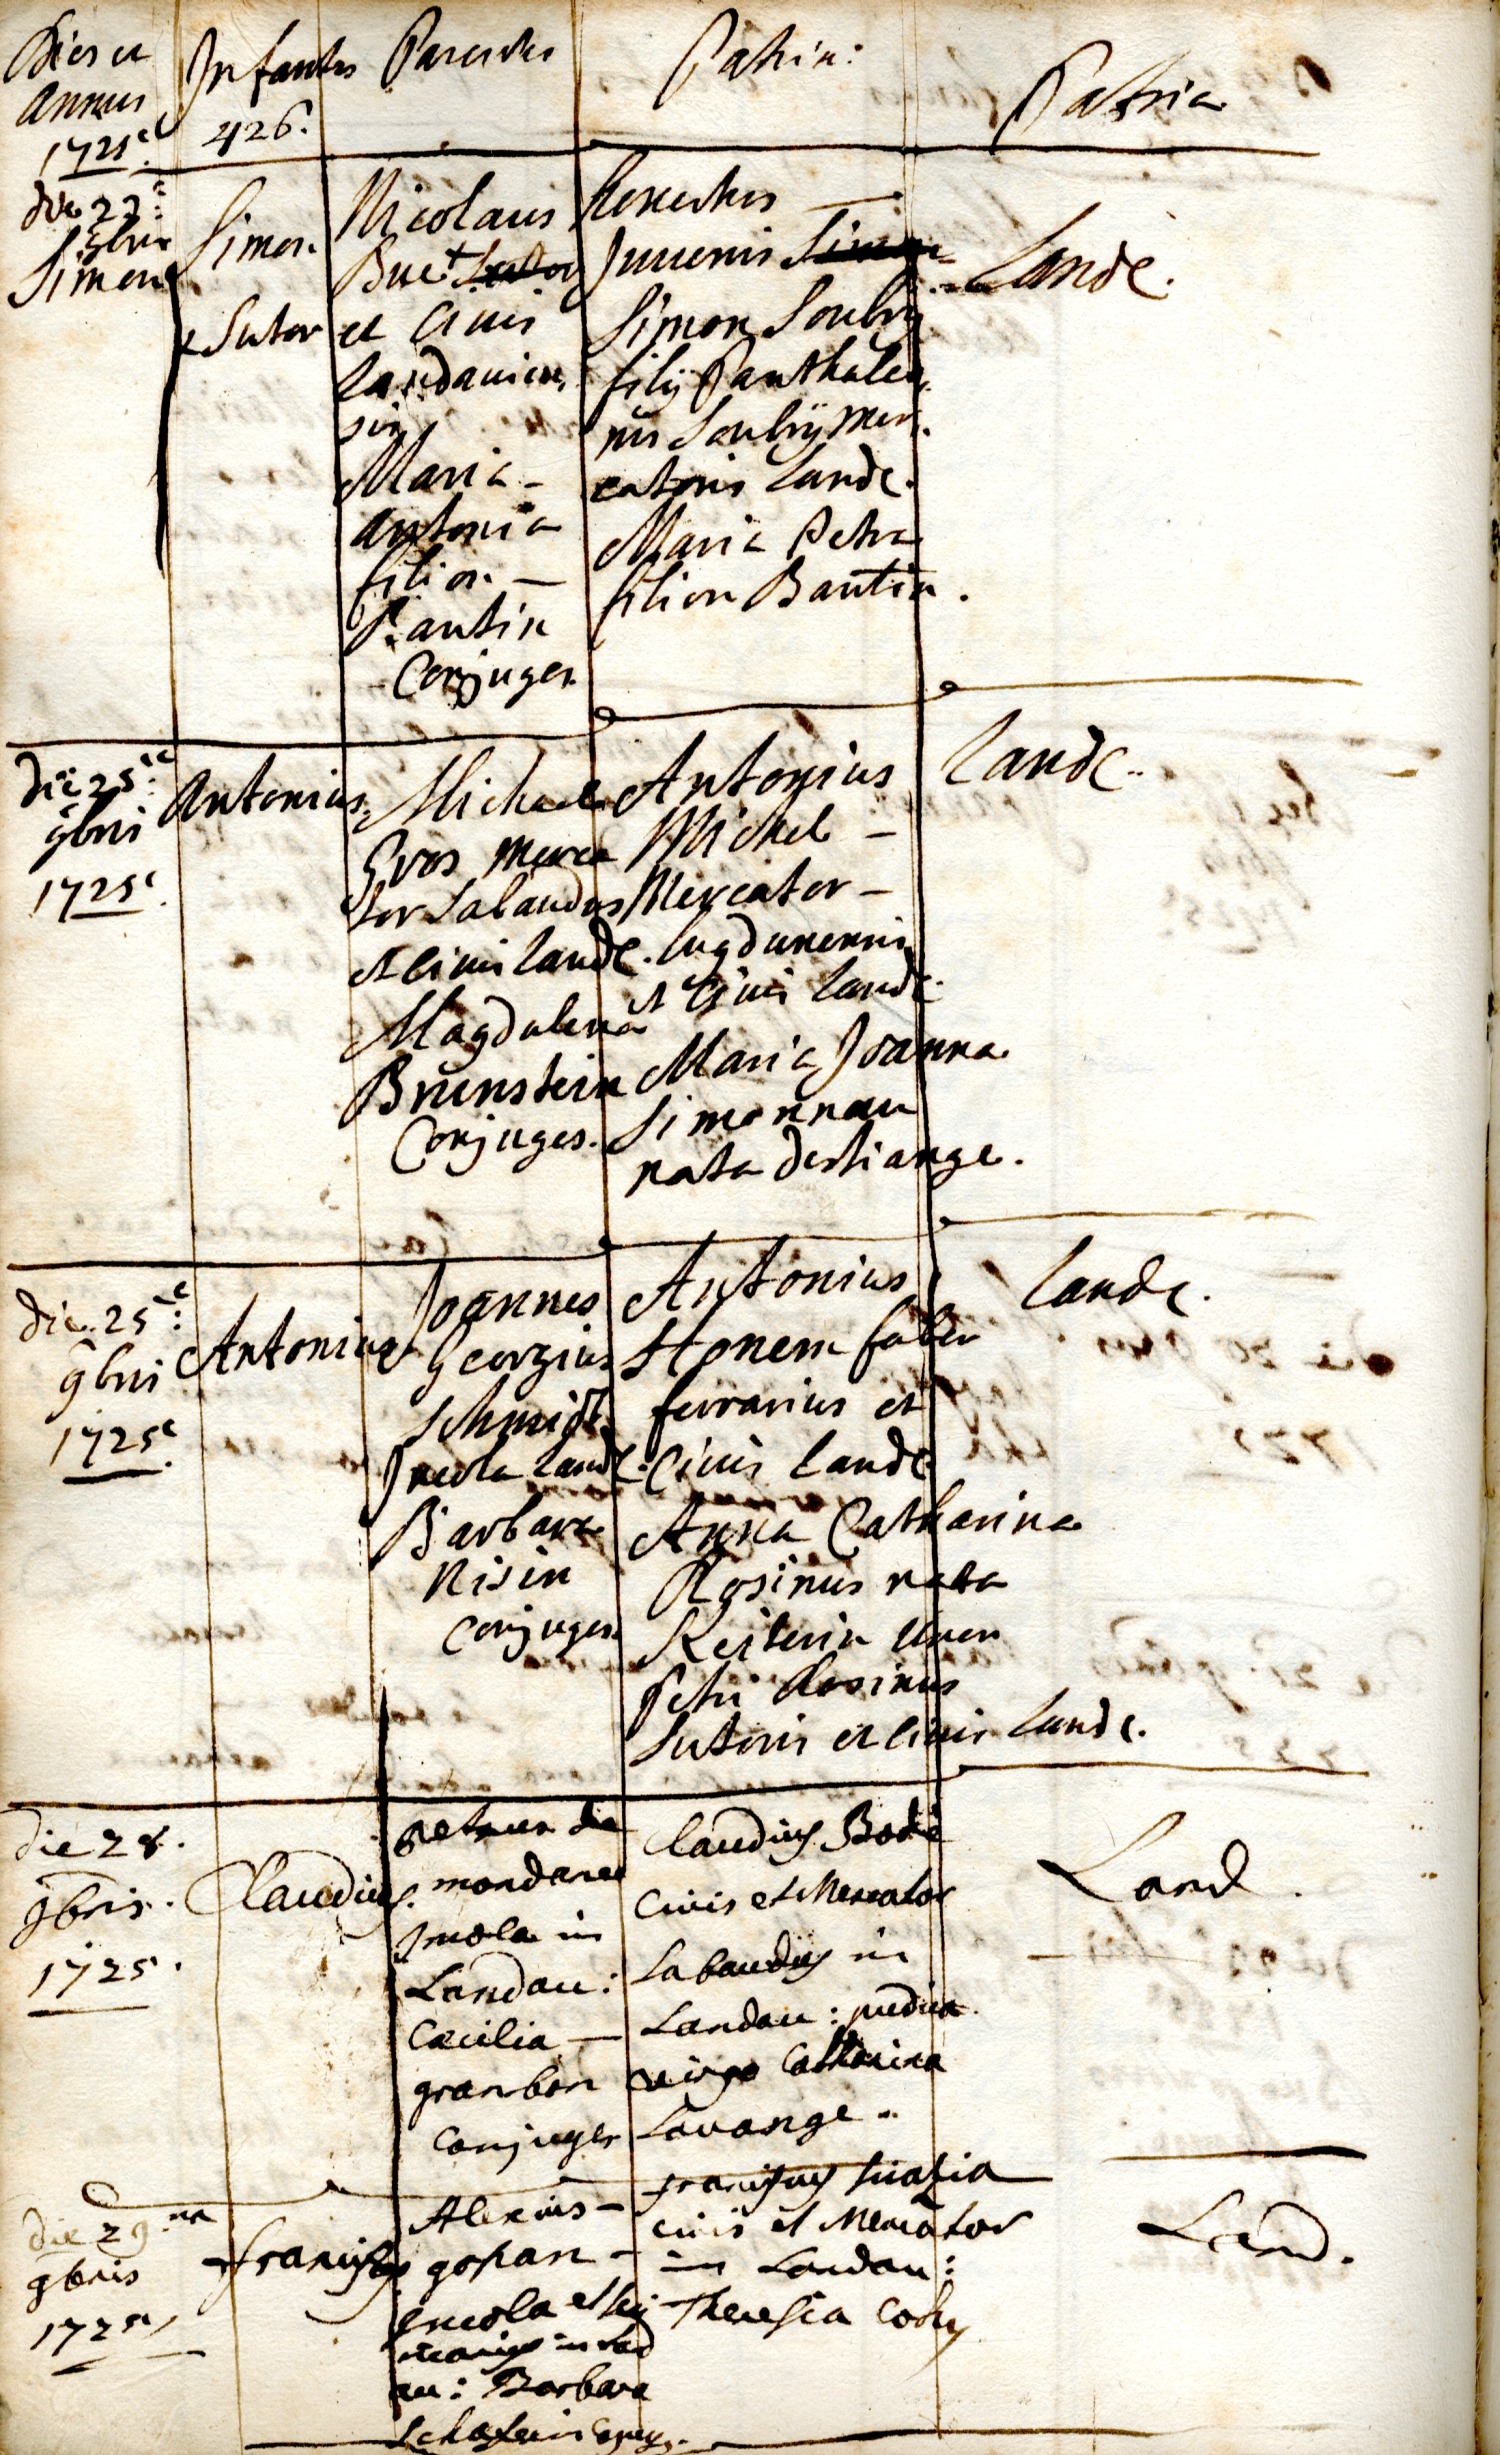 Dies et
Annus
1725
Infantes
426.
Parentes
Patrin:
Patria
die 22
9bris
Simon
Simon
+ Sutor
Nicolaus
Bue +
et Civis
Landavien
sis
Maria
Antonia
filion
Bantin
Conjuges
honestus
Juvenis
Simon Soubry
filij Panthaleo
nis Soubrÿ mer
catoris Landc.
Maria Petra
filion Bantin.
Landc.
die 25
9bris
1725
Antonius
Michael
Gros merca
tor Sabaudus
et civis Landc.
Magdalena
Brunstein
Conjuges.
Antonius
Michel
Mercator
Lugdunensis
et Civis Landc.
Maria Joanna
Simonnau
nata destiange.
Landc.
die 25
9bris
1725
Antonius
Joannes
Georgius
Schmidt
Incola Landc.
Barbara
Nisin
Conjuges
Antonius
Honem faber
ferrarius et
Civis Landc
Anna Catharina
Rosinus nata
Keiterin uxor
Petri Rosinus
Sutoris et Civis Landc.
Landc.
die 28.
9bris.
1725.
Claudius.
Petrus de
mondare
Incola in
Landau:
Cæcilia
granbon
Conjuges
Claudius Bodé
Civis et Mercator
Sabaudus in
Landau: pudica
virgo Catharina
Lavange.
Land.
die 29
9bris
1725
franciscus
Alexius
gopan
incola et
in Land
au: Barbara
Schæferin Conjug.
franciscus
civis et Mercator
in Landau:
Theresia
Land.